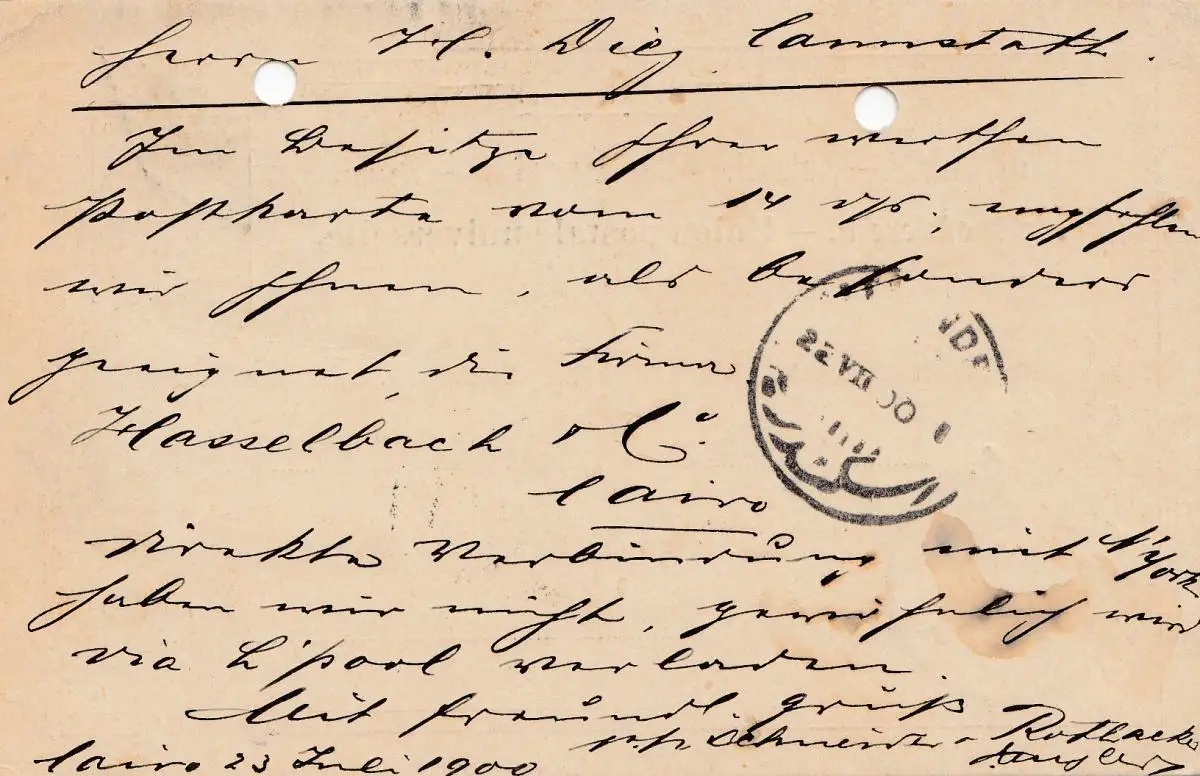 Herrn H. Diez Cannstatt.
Im Besitze Ihrer werthen
Postkarte vom 14 ds, empfehlen
wir Ihnen, als besonders
geeignet, die Firma
Hasselbach & Co.
Cairo
direkte Verbindung mit N'York
haben wir nicht, gewöhnlich wird
via L'pool verladen.
Mit freundl. Gruß
p.p. Schneider & Rothacker
Cairo 23 Juli 1900
NDR
22 VII 00
اسكندرية